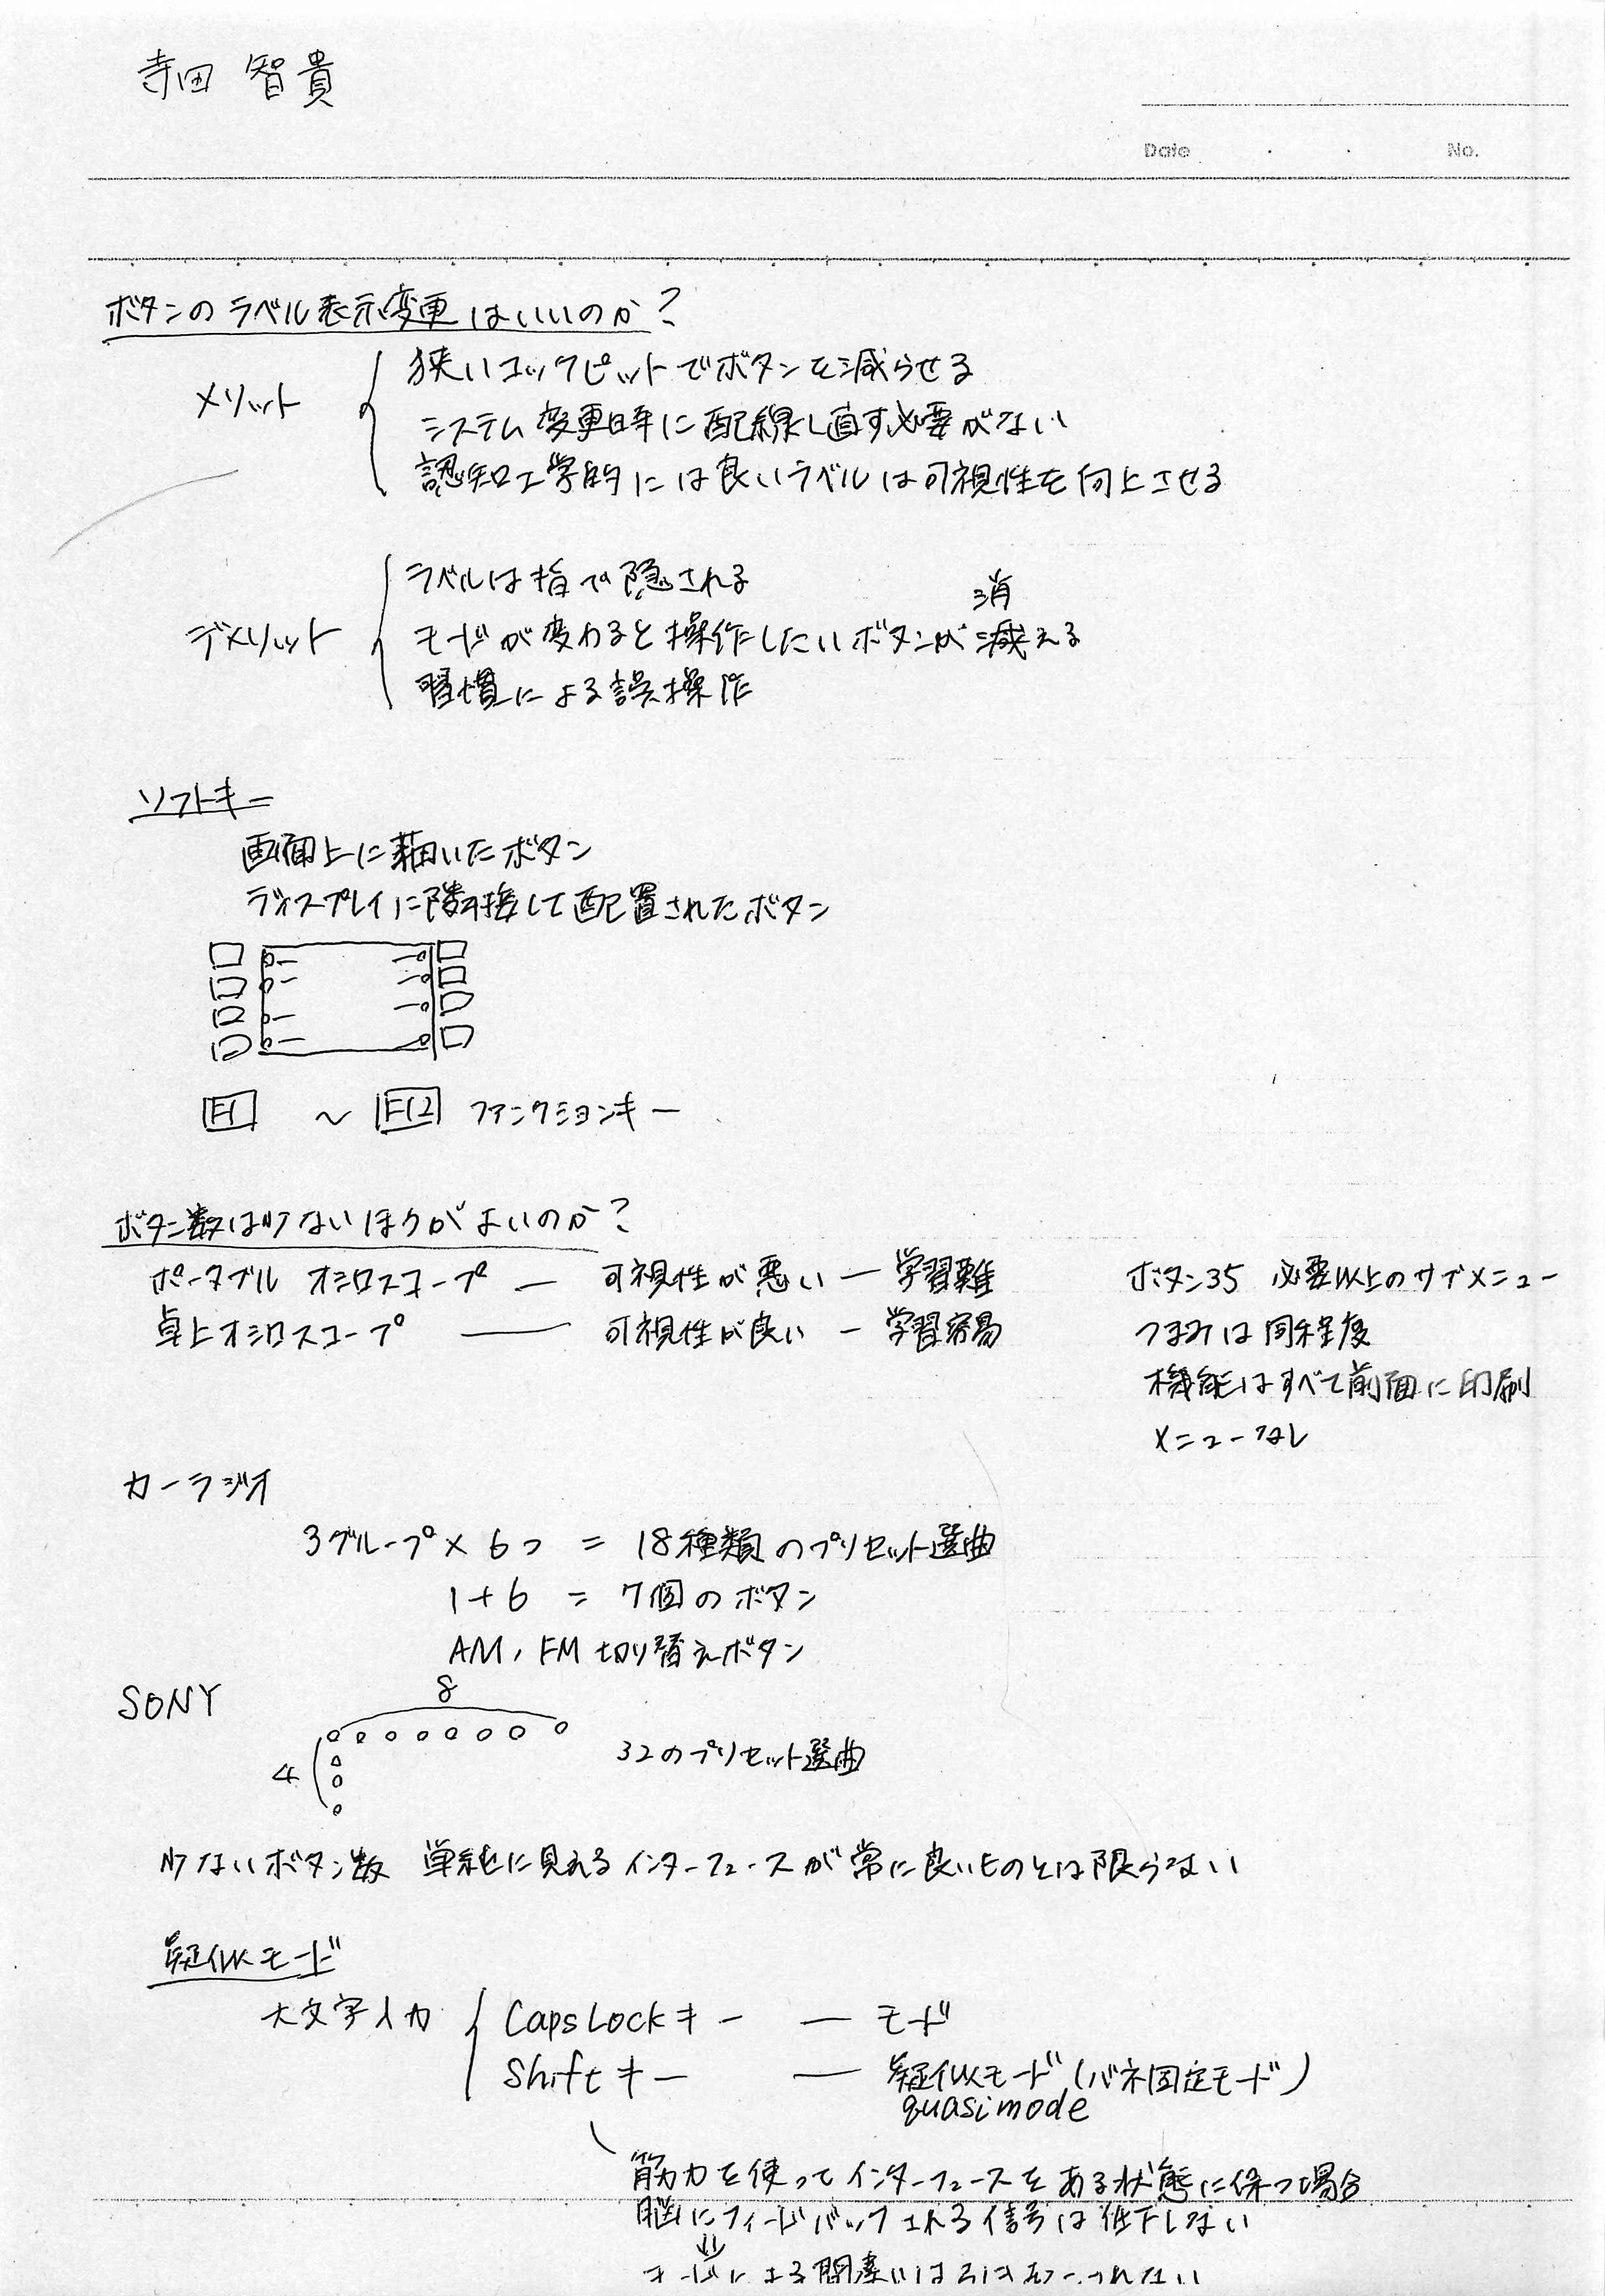 寺田 智貴
Date . . No.
ボタンのラベル表示変更はいいのか?
メリット
狭いコックピットでボタンを減らせる
システム変更時に配線し直す必要がない
認知工学的には良いラベルは可視性を向上させる
デメリット
ラベルは指で隠される
消
モードが変わると操作したいボタンが滅える
習慣による誤操作
ソフトキー
画面上に描いたボタン
ディスプレイに隣接して配置されたボタン
F1 〜 F12 ファンクションキー
ボタン数は少ないほうがよいのか?
ポータブル オシロスコープ — 可視性が悪い — 学習難 ボタン35 必要以上のサブメニュー
卓上オシロスコープ — 可視性が良い — 学習容易 つまみは同程度
機能はすべて前面に印刷
メニューなし
カーラジオ
3グループ × 6つ = 18種類のプリセット選曲
1+6 = 7個のボタン
AM, FM 切り替えボタン
SONY
8
4
32のプリセット選曲
少ないボタン数 単純に見えるインターフェースが常に良いものとは限らない
疑似モード
大文字入力
CapsLockキー — モード
Shiftキー — 疑似モード(バネ固定モード)
quasimode
筋力を使ってインターフェースをある状態に保つ場合
脳にフィードバックされる信号は低下しない
⇓
モードによる間違いは引き起こされない